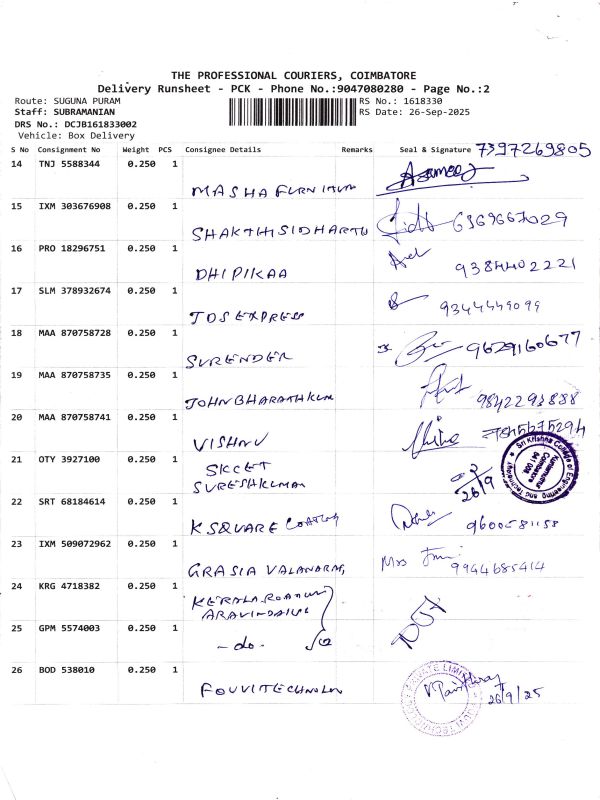 THE PROFESSIONAL COURIERS, COIMBATORE
Delivery Runsheet - PCK - Phone No.:9047080280 - Page No.:2
Route: SUGUNA PURAM RS No.: 1618330
Staff: SUBRAMANIAN RS Date: 26-Sep-2025
DRS No.: DCJB161833002
Vehicle: Box Delivery
S No Consignment No Weight PCS Consignee Details Remarks Seal & Signature 7397269805
14 TNJ 5588344 0.250 1
MASHA FURNITUM
15 IXM 303676908 0.250 1
SHAKTHISIDHARTU 6369667029
16 PRO 18296751 0.250 1
DHIPIKAA 9384402221
17 SLM 378932674 0.250 1
TDS EXPRESS 9344449099
18 MAA 870758728 0.250 1
SURENDER 9629160677
19 MAA 870758735 0.250 1
JOHNBHARATHKUM 9842293888
20 MAA 870758741 0.250 1
VISHNU 7845675294
21 OTY 3927100 0.250 1
SKCET
SURESHKUMAR 26/9
Sri Krishna College of Engineering and Technology
Kuniamuthur
Coimbatore
641 008
22 SRT 68184614 0.250 1
K SQUARE COATING 9600581158
23 IXM 509072962 0.250 1
GRASIA VALANARASI 9944685414
24 KRG 4718382 0.250 1
KERALA ROADWAY
ARAVINDAKUL
25 GPM 5574003 0.250 1
- do -
26 BOD 538010 0.250 1
FOUVITECHNOLOM 26/9/25